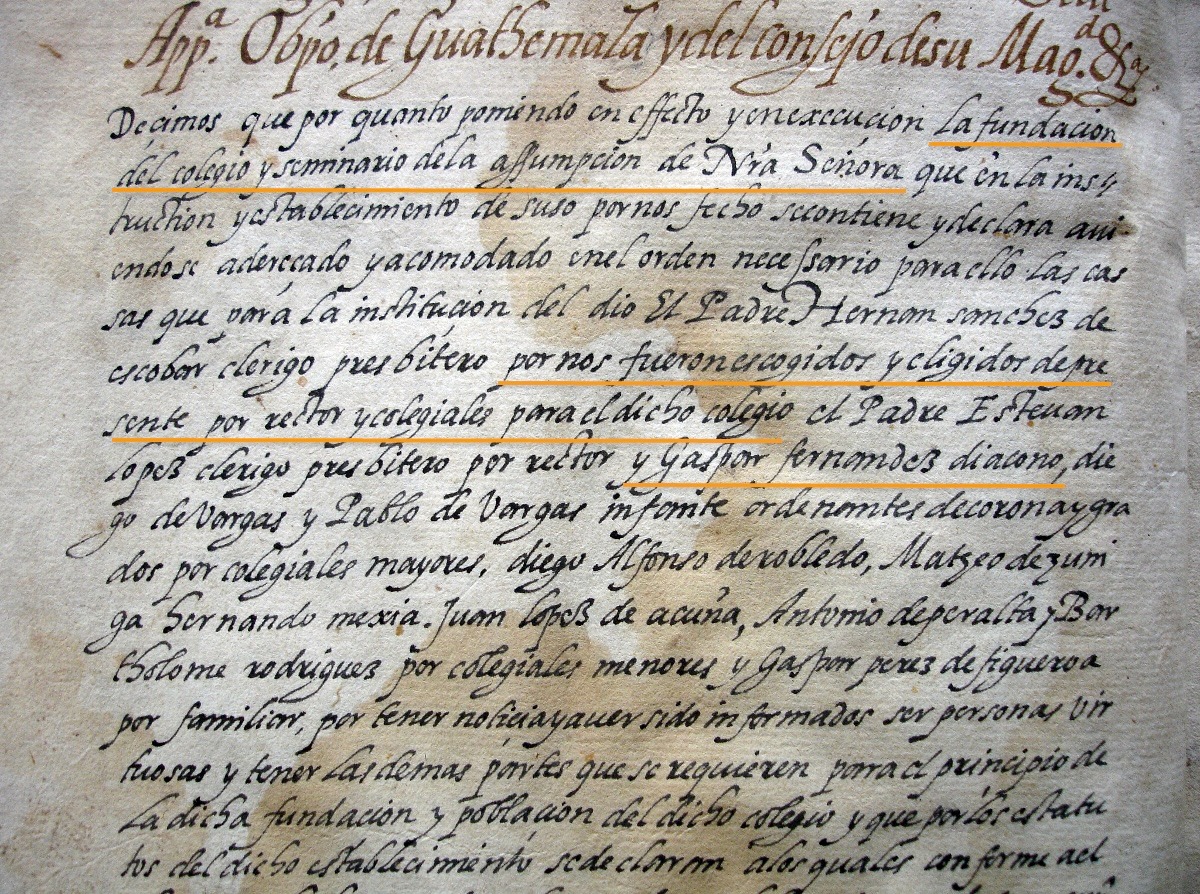 Appª. Obpo. de Guathemala y del consejo de su Magd. &ª
Decimos que por quanto poniendo en effecto y en execucion la fundacion
del colegio y seminario de la assumpcion de Nra Señora que en la ins
truction y establecimiento de suso por nos fecho se contiene y declara avi
endose aderecado y acomodado en el orden necessario para ello las cas
sas que para la institucion del dio El Padre Hernan sanchez de
escobar clerigo presbitero por nos fueron escogidos y eligidos de pre
sente por rector y colegiales para el dicho colegio el Padre Estevan
lopez clerigo presbitero por rector y Gaspar fernandez diacono, die
go de Vargas y Pablo de Vargas infante ordenantes de corona y gra
dos por colegiales mayores, diego Alfonso de robledo, Matheo de zuni
ga hernando mexia. Juan lopez de acuña, Antonio de peralta y Bar
tholome rodriguez por colegiales menores y Gaspar perez de figueroa
por familiar, por tener noticia y aver sido informados ser personas vir
tuosas y tener las demas partes que se requieren para el principio de
La dicha fundacion y poblacion del dicho colegio y que por los estatu
tos del dicho establecimiento se declaran a los quales conforme a el